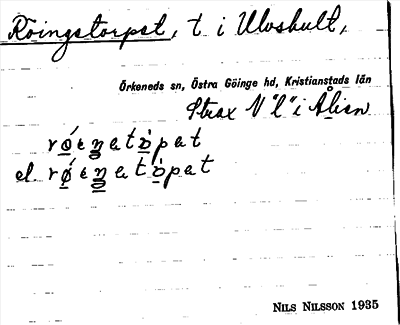 Röingstorpet, t i Ulvshult,
Örkeneds sn, Östra Göinge hd, Kristianstads län
Strax N "l" i Ålian
røeŋatòpat
el. røeŋatòpat
NILS NILSSON 1935